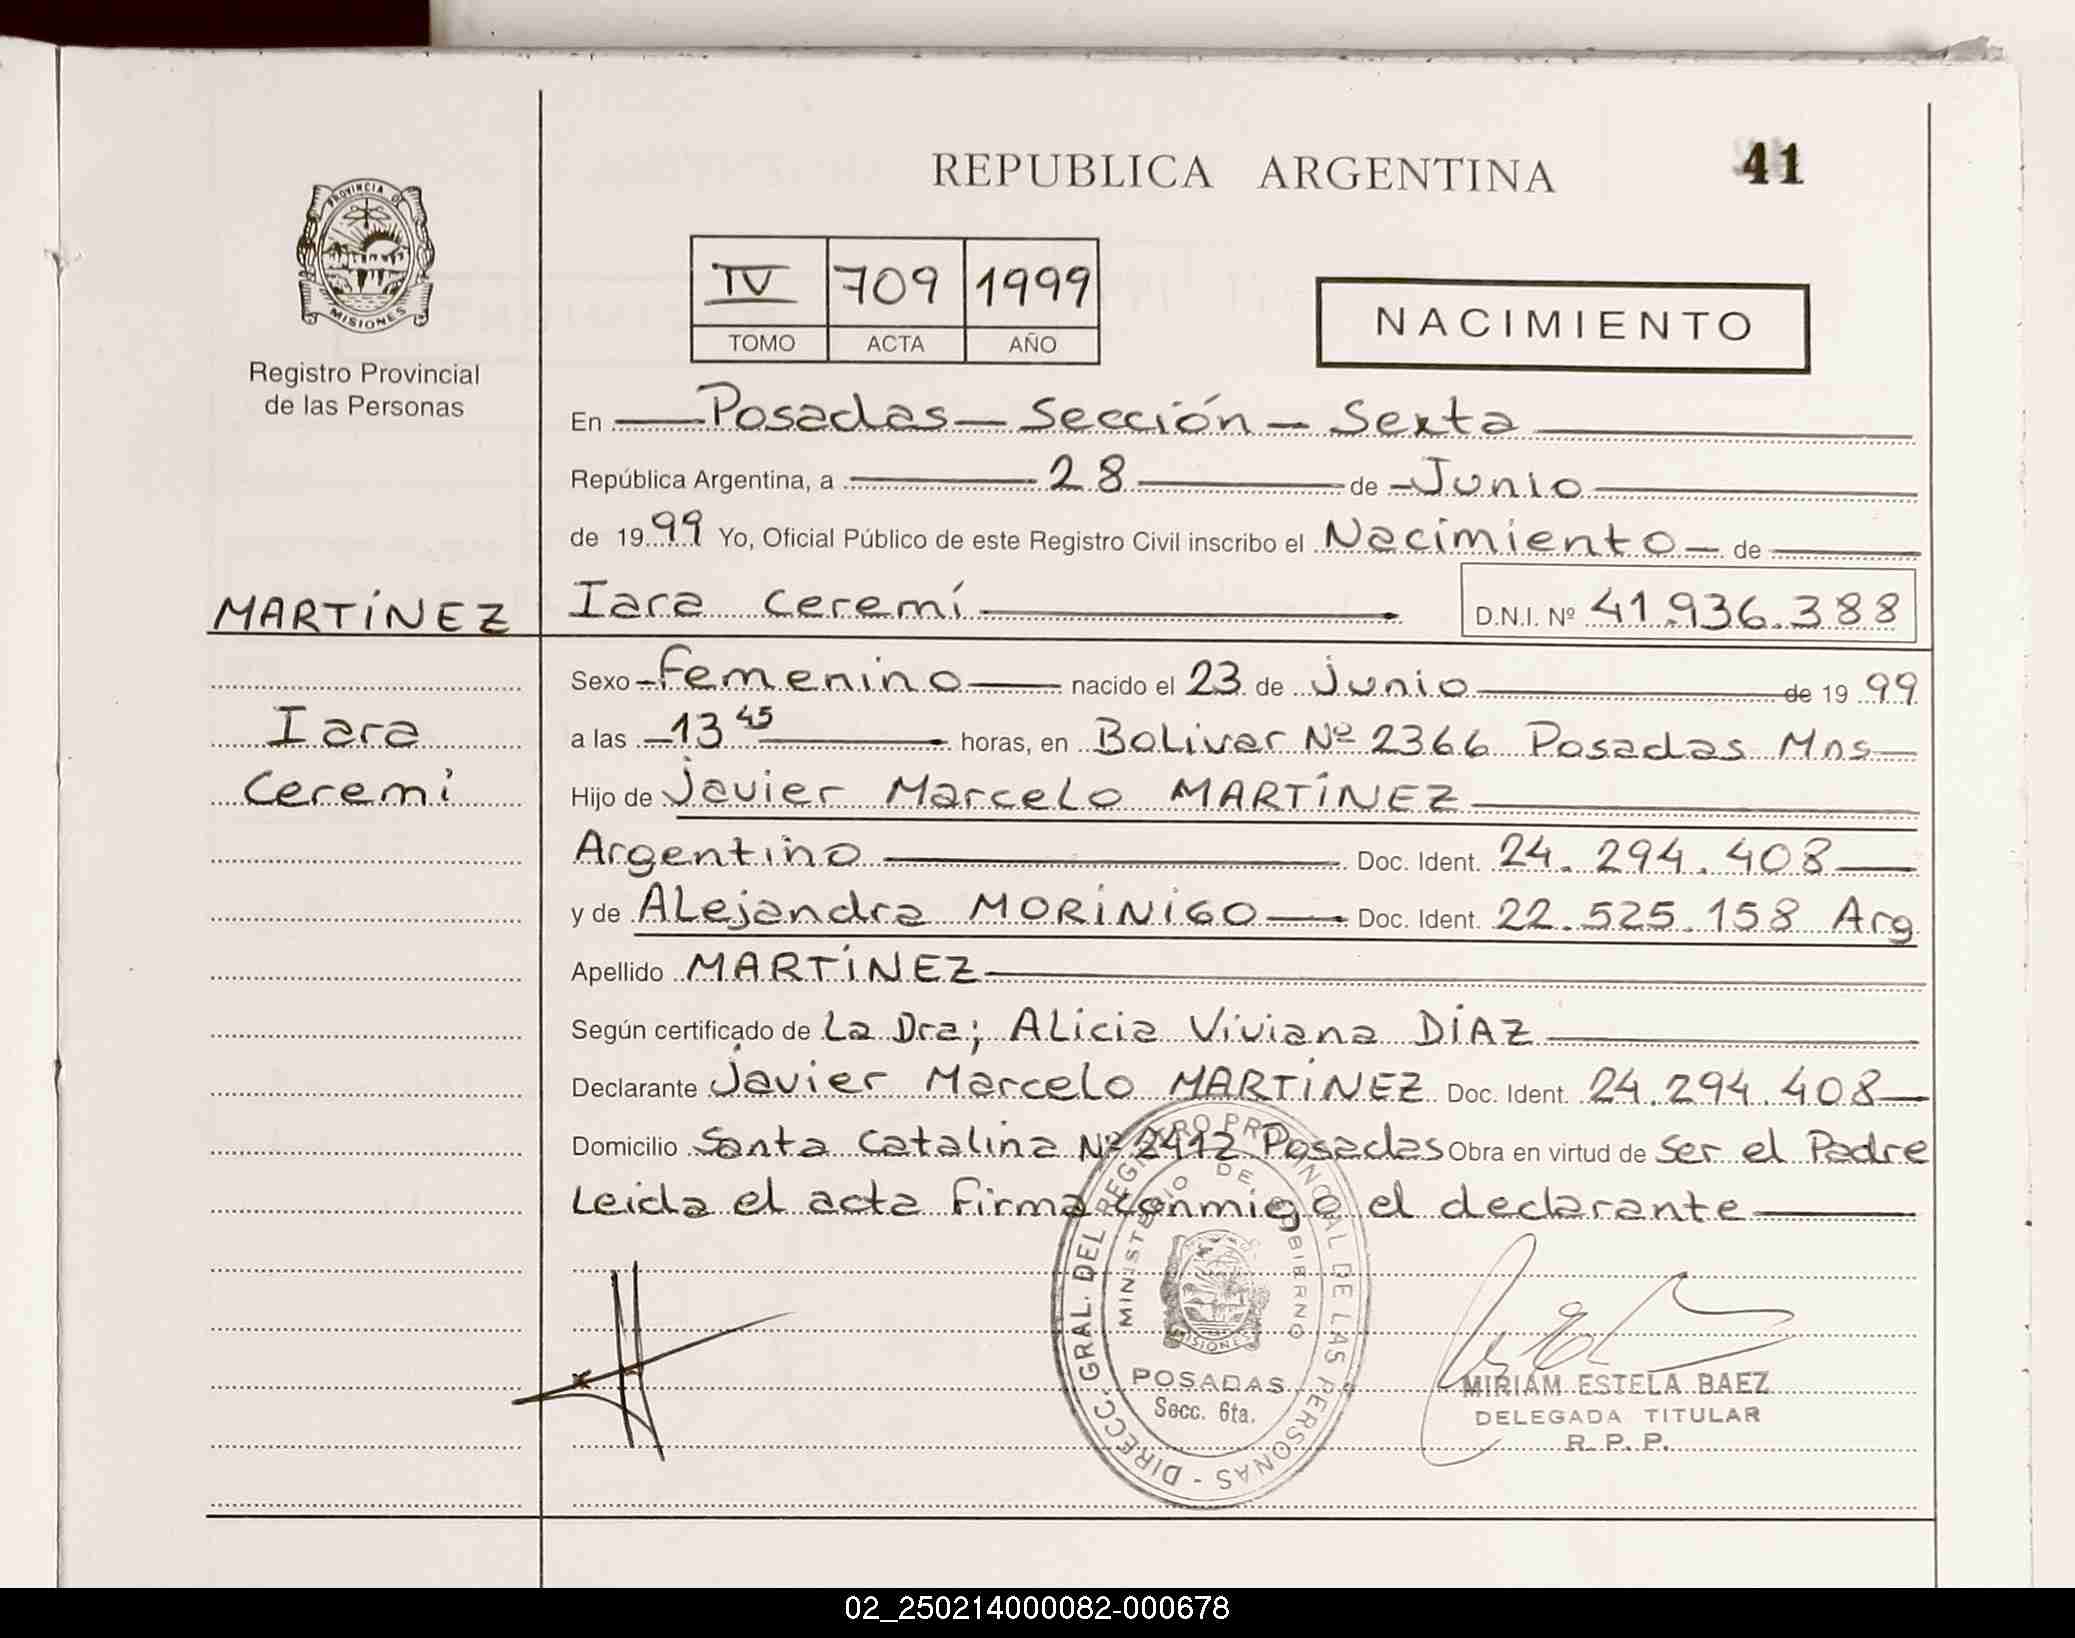 REPUBLICA ARGENTINA
41
PROVINCIA DE
MISIONES
Registro Provincial
de las Personas
IV 709 1999
TOMO ACTA AÑO
NACIMIENTO
En Posadas - Sección - Sexta
República Argentina, a 28 de Junio
de 1999 Yo, Oficial Público de este Registro Civil inscribo el Nacimiento de
Iara Ceremí D.N.I. Nº 41.936.388
MARTÍNEZ
Iara
Ceremí
Sexo Femenino nacido el 23 de Junio de 1999
a las 13 45 horas, en Bolivar Nº 2366 Posadas Mns
Hijo de Javier Marcelo MARTÍNEZ
Argentino Doc. Ident. 24.294.408
y de Alejandra MORÍNIGO Doc. Ident. 22.525.158 Arg
Apellido MARTÍNEZ
Según certificado de La Dra; Alicia Viviana DÍAZ
Declarante Javier Marcelo MARTÍNEZ Doc. Ident. 24.294.408
Domicilio Santa Catalina Nº 2412 Posadas Obra en virtud de Ser el Padre
Leida el acta firma conmigo el declarante
DIRECC. GRAL. DEL REGISTRO PROVINCIAL DE LAS PERSONAS -
MINISTERIO DE GOBIERNO
MISIONES
POSADAS
Secc. 6ta.
MIRIAM ESTELA BAEZ
DELEGADA TITULAR
R. P. P.
02_250214000082-000678